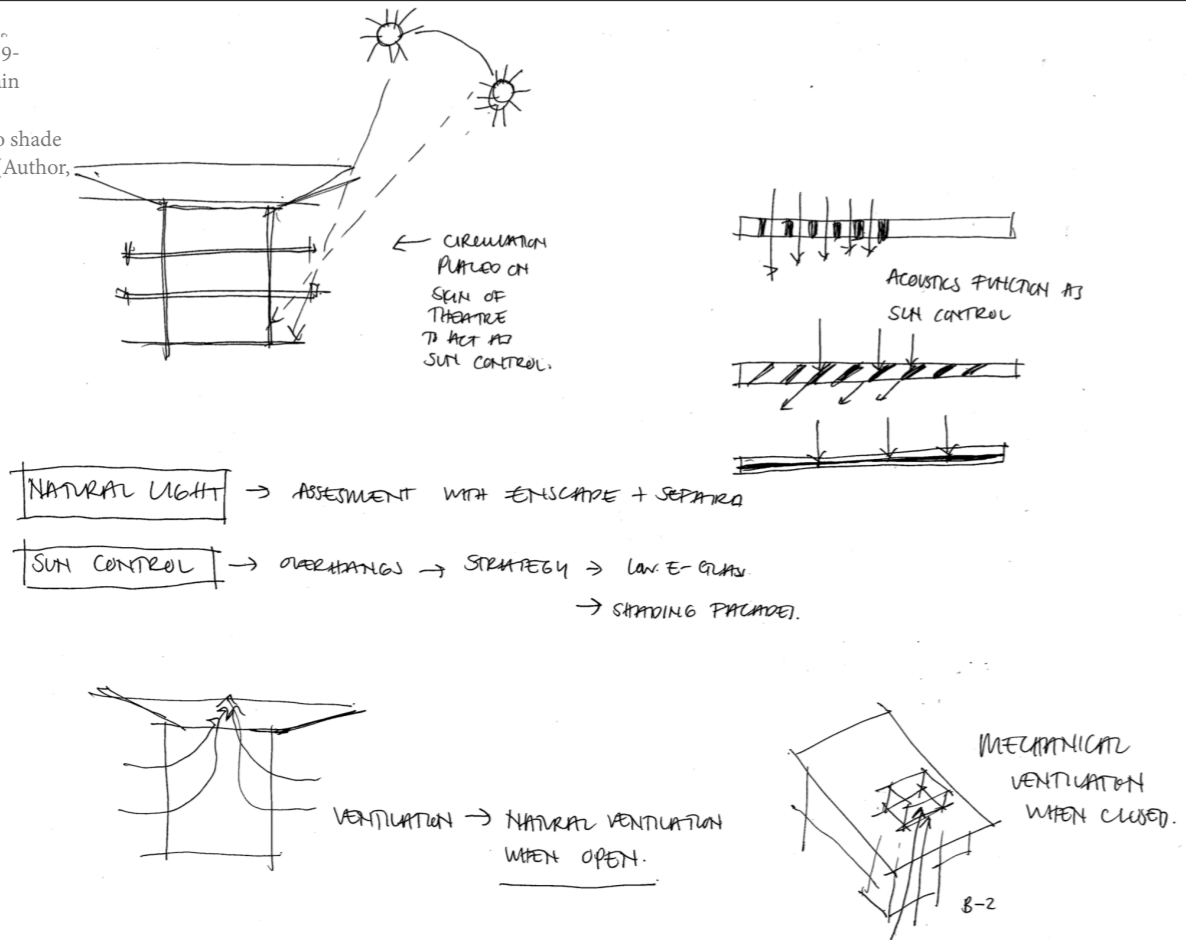 9-
in
o shade
(Author,
← CIRCULATION
PLACED ON
SKIN OF
THEATRE
TO ACT AS
SUN CONTROL.
ACOUSTICS FUNCTION AS
SUN CONTROL
NATURAL LIGHT → ASSESMENT WITH ENSCAPE + SEFAIRA
SUN CONTROL → OVERHANGS → STRATEGY → LOW E-GLASS.
→ SHADING FACADES.
VENTILATION → NATURAL VENTILATION
WHEN OPEN.
MECHANICAL
VENTILATION
WHEN CLOSED.
B-2